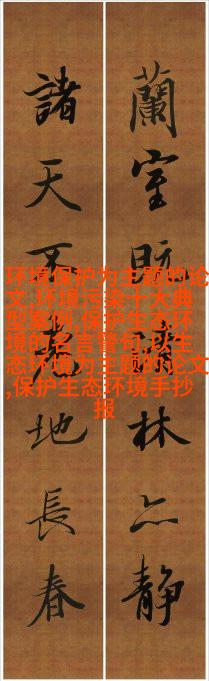 蘭室既林亦静
諸天不地長春
环境保护为主题的论
文,环境污染十大典
型案例,保护生态环
境的名言警句,以生
态环境为主题的论文
,保护生态环境手抄
报